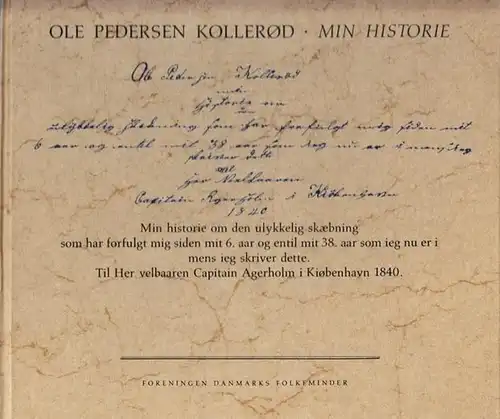 OLE PEDERSEN KOLLERØD · MIN HISTORIE
Ole Pedersen Kollerød
min
Historie om
ulykkelig skæbning som har forfulgt mig siden mit
6 aar og entil mit 38 aar som ieg nu er i mens ieg
skriver dette
til
Her Velbaaren
Capitain Agerholm i Kiøbenhavn
1840
Min historie om den ulykkelig skæbning
som har forfulgt mig siden mit 6. aar og entil mit 38. aar som ieg nu er i
mens ieg skriver dette.
Til Her velbaaren Capitain Agerholm i Kiøbenhavn 1840.
FORENINGEN DANMARKS FOLKEMINDER